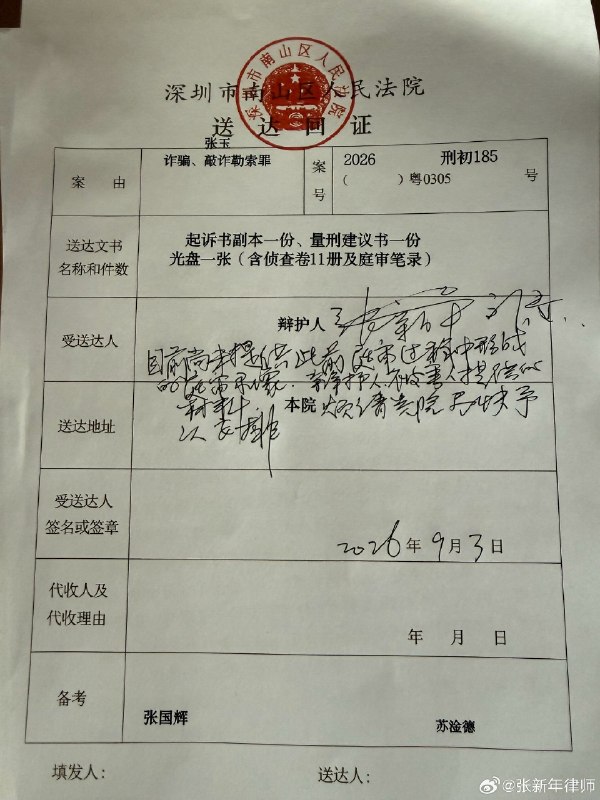 深圳市南山区人民法院
深圳市南山区人民法院
送 达 回 证
案 由
张玉
诈骗、敲诈勒索罪
案号
2026 刑初185
( )粤0305 号
送达文书
名称和件数
起诉书副本一份、量刑建议书一份
光盘一张（含侦查卷11册及庭审笔录）
受送达人
辩护人 张新年
目前尚未提供此前庭审过程中形成
的 辩护人、被害人提供的
材料 烦请贵院尽快予
以安排
送达地址
本院
受送达人
签名或签章
2026年9月3日
代收人及
代收理由
年 月 日
备考
张国辉
苏淦德
填发人：
送达人：
@张新年律师